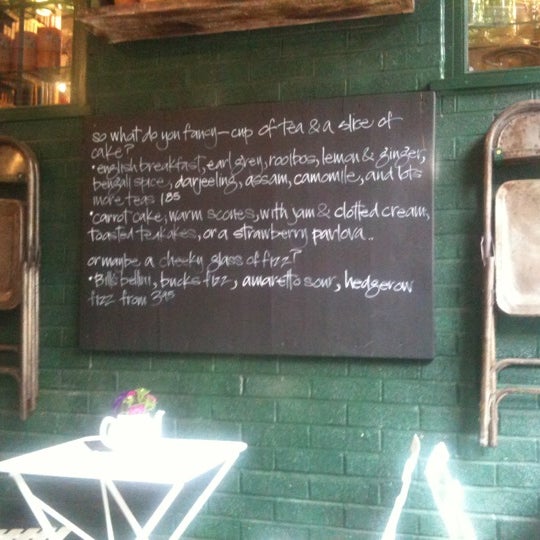 so what do you fancy - cup of tea & a slice of
cake?
• english breakfast, earl grey, rooibos, lemon & ginger,
bengali spice, darjeeling, assam, camomile, and lots
more teas 1.85
• carrot cake, warm scones, with jam & clotted cream,
toasted teakakes, or a strawberry pavlova..
or maybe a cheeky glass of fizz?
• Bill's bellini, bucks fizz, amaretto sour, hedgerow
fizz from 3.95